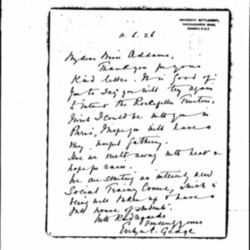 UNIVERSITY SETTLEMENT,
BOMBAY,
11. 6. 26
My dear Miss Addams,
Thank you for your
kind letter. It is good of
you to say you will try again
to interest the Rockefeller Trustees.
Wish I could be with you in
Paris, I hope you will have a
very helpful gathering.
Here we melt away with heat &
hope for rain.
We are starting an entirely new
Social Training Course, which is
being well taken up & have a
full house of students.
With kind regards
Yours sincerely